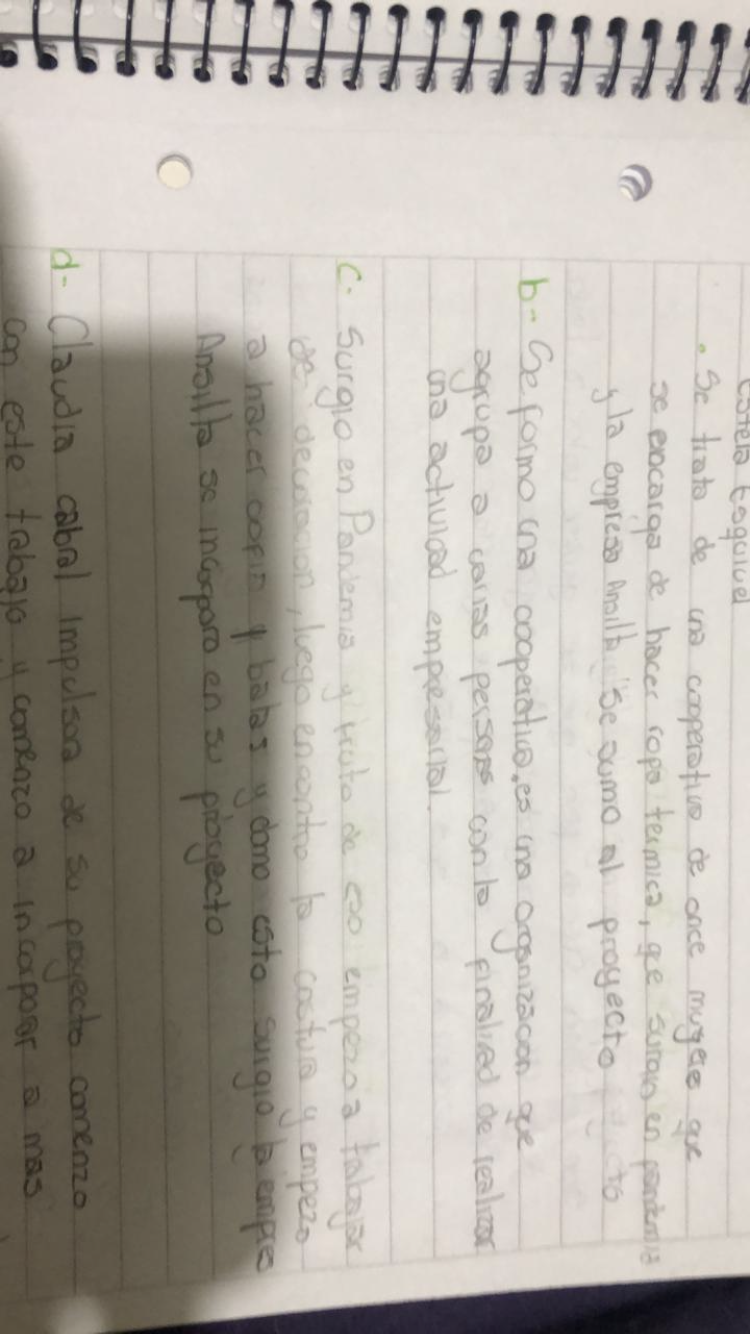 Estela Esquivel
• Se trata de una cooperativa de once mugeres que
se encarga de hacer ropa termica, que surgio en pandemia
y la empresa Ansilta se sumo al proyecto
b- Se formo una cooperativa, es una organizacion que
agrupa a varias personas con la finalidad de realizar
una actividad empresarial.
c- Surgio en Pandemia y trato de eso empezo a trabajar
de decoracion, luego encontro la costura y empezo
a hacer cofia y batas y dono esto surgio la empres
Ansilta se incorporo en su proyecto
d- Claudia cabral impulsora de su proyecto comenzo
con este trabajo y comenzo a incorporar a mas